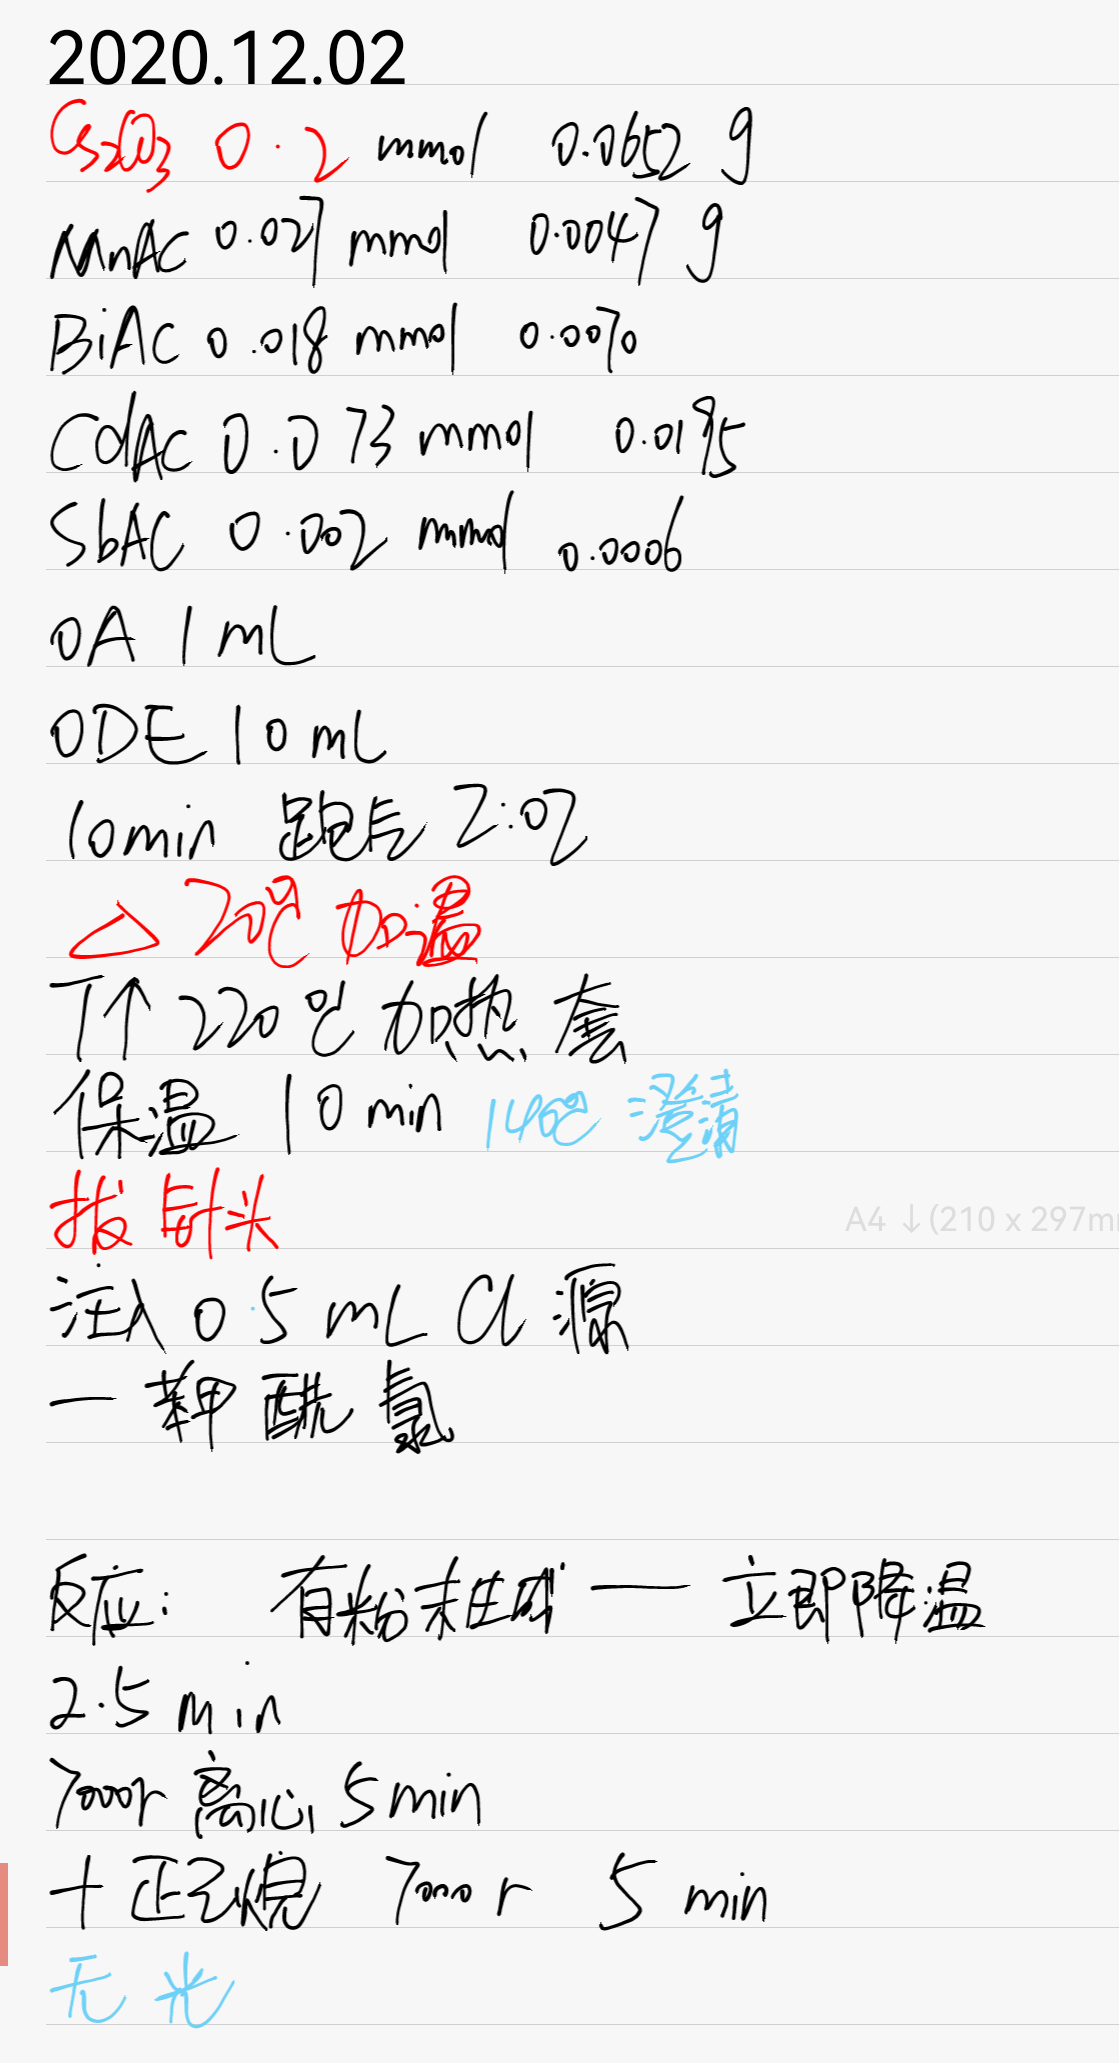 2020.12.02
Cs2CO3 0.2 mmol 0.0652 g
MnAC 0.027 mmol 0.0047 g
BiAC 0.018 mmol 0.0070
CdAC 0.073 mmol 0.0195
SbAC 0.002 mmol 0.0006
OA 1 mL
ODE 10 mL
10min 跑气 2:02
△ 20℃ 加温
T↑ 220℃ 加热套
保温 10 min 140℃ 澄清
A4 ↓(210 x 297m
拔针头
注入 0.5 mL Cl 源
一 苯甲酰氯
反应: 有粉末生成 — 立即降温
2.5 min
7000r 离心 5min
+ 正己烷 7000r 5 min
无光